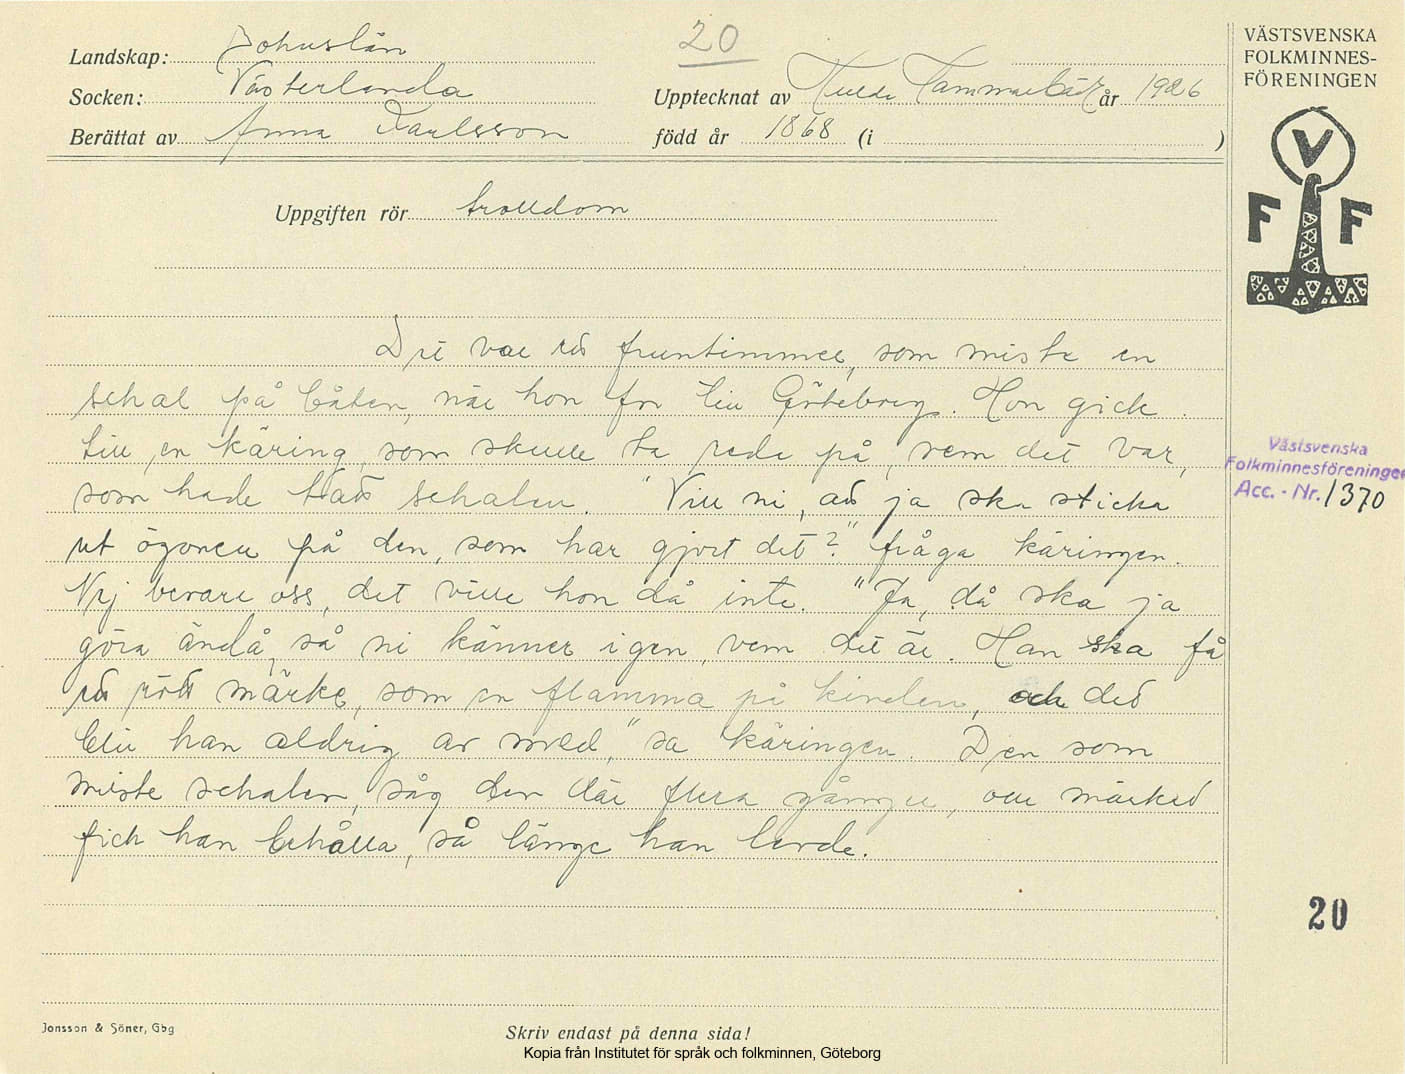 20
Landskap: Bohuslän
Socken: Västerlanda
Upptecknat av Hulda Hammarbäck år 1926
Berättat av Anna Karlsson född år 1868 (i )
VÄSTSVENSKA
FOLKMINNES-
FÖRENINGEN
V
F F
Uppgiften rör trolldom
Det var ett fruntimmer, som miste en
schal på båten, när hon for till Göteborg. Hon gick
till en käring, som skulle ta reda på, vem det var,
som hade tatt schalen. "Vill ni, att ja ska sticka
ut ögonen på den, som har gjort det?" fråga käringen.
Nej bevare oss, det ville hon då inte. "Ja, då ska ja
göra ändå, så ni känner igen, vem det är. Han ska få
ett rött märke, som en flamma på kinden, och det
blir han aldrig av med," sa käringen. Den som
miste schalen, såg den där flera gånger, och märket
fick han behålla, så länge han levde.
Västsvenska
Folkminnesföreningen
Acc. - Nr. 1370
20
Jonsson & Söner, Gbg
Skriv endast på denna sida!
Kopia från Institutet för språk och folkminnen, Göteborg